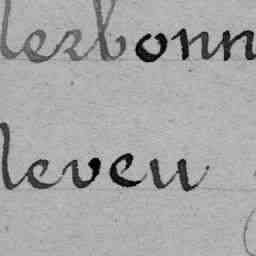 lerbonn
leveu